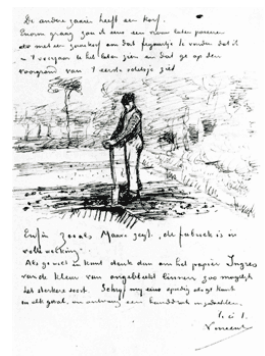 De andere zaaier heeft een korf.
Enorm graag zou ik eens een vrouw laten poseeren
met een zaaikorf om dat figuurtje te vinden dat ik
U 't voorjaar heb laten zien en dat ge op den
voorgrond van 't eerste schetsje ziet
Enfin zooals Mauve zegt, de fabriek is in
volle werking.
Als ge wilt en kunt denk dan om het papier Ingres
van de kleur van ongebleekt linnen zoo mogelijk
het sterkere soort. Schrijf mij eens spoedig als ge kunt
en elk geval, en ontvang een handdruk in gedachten.
t. à t.
Vincent